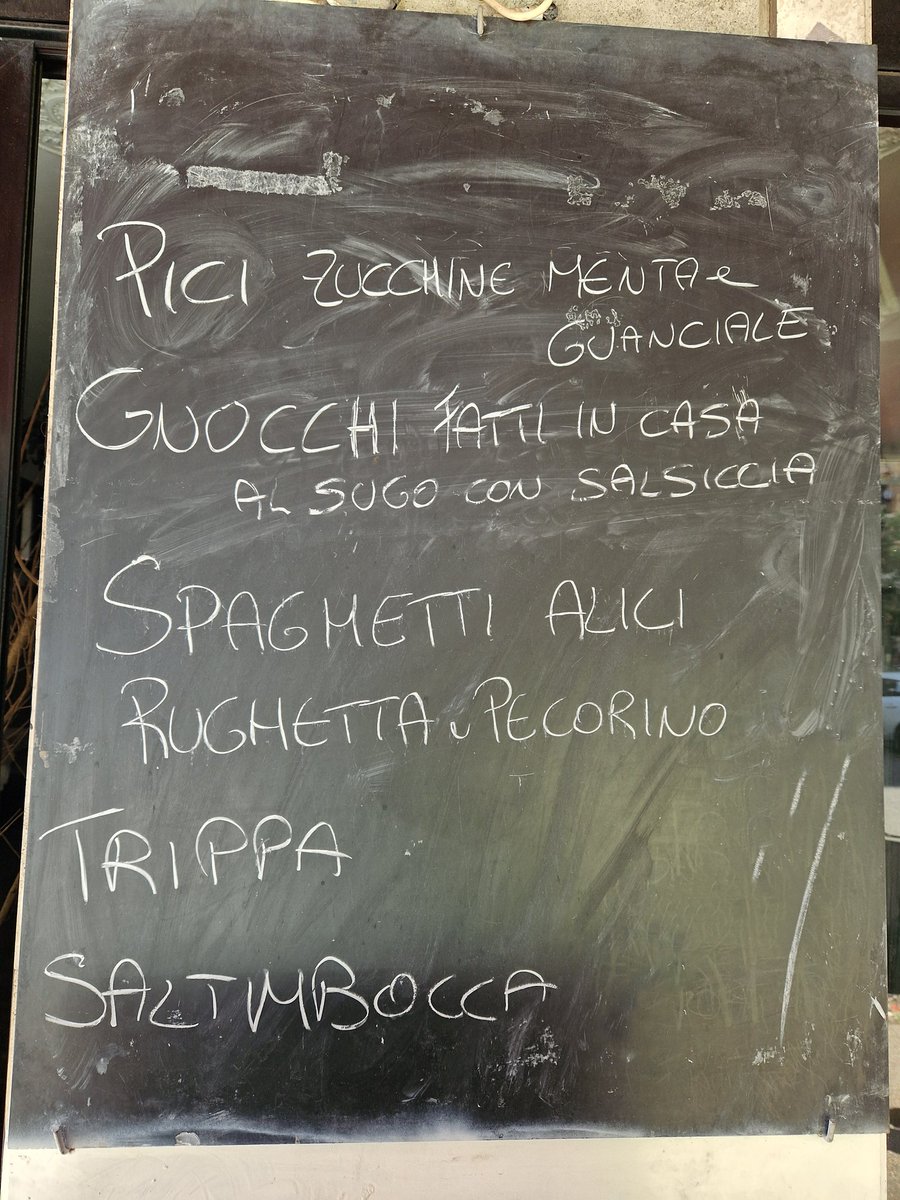 PICI ZUCCHINE MENTA e
GUANCIALE
GNOCCHI FATTI IN CASA
AL SUGO CON SALSICCIA
SPAGHETTI ALICI
RUGHETTA e PECORINO
TRIPPA
SALTIMBOCCA